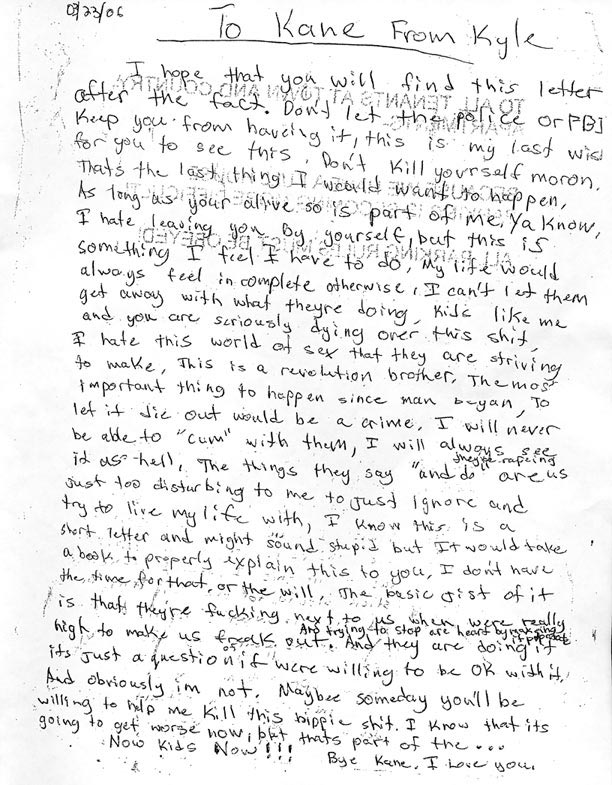 03/23/06
To Kane From Kyle
I hope that you will find this letter
after the fact. Don't let the police or FBI
keep you from haveing it, this is my last wish
for you to see this. Don't kill yourself moron.
Thats the last thing I would want to happen.
As long as your alive so is part of me. Ya know,
I hate leaving you by yourself, but this is
something I feel I have to do. My life would
always feel in complete otherwise. I can't let them
get away with what theyre doing. Kids like me
and you are seriously dying over this shit.
I hate this world of sex that they are striving
to make. This is a revolution brother. The most
important thing to happen since man began, To
let it die out would be a crime. I will never
be able to "cum" with them, I will always see
it as hell. The things they say "and do" are us
theyre rapeing
just too disturbing to me to just ignore and
try to live my life with, I know this is a
short letter and might sound stupid but It would take
a book to properly explain this to you, I don't have
the time for that, or the will. The basic jist of it
is that theyre fucking next to us when were really
high to make us freak out. And they are doing it
And trying to stop are heart by
its just a question of if were willing to be OK with it,
And obviously im not. Maybee someday you'll be
willing to help me kill this hippie shit. I know that its
going to get worse now, but thats part of the ...
Now Kids Now!!!
Bye Kane, I love you.
TO ALL TENANTS AT TOWN AND COUNTRY
ALL PARKING RULES MUST BE OBEYED